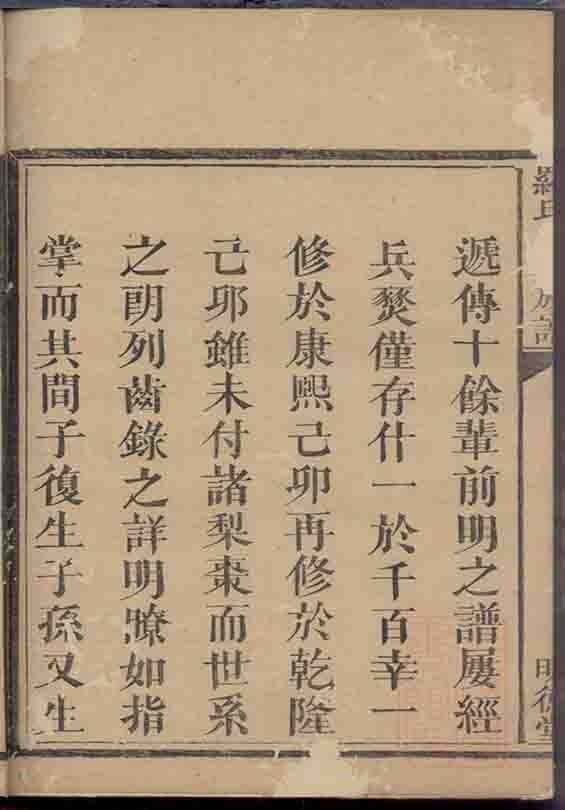 羅氏族譜
明德堂
遞傳十餘輩前明之譜屢經
兵燹僅存什一於千百幸一
修於康熙己卯再修於乾隆
己卯雖未付諸梨棗而世系
之朗列齒錄之詳明瞭如指
掌而其間子復生子孫又生